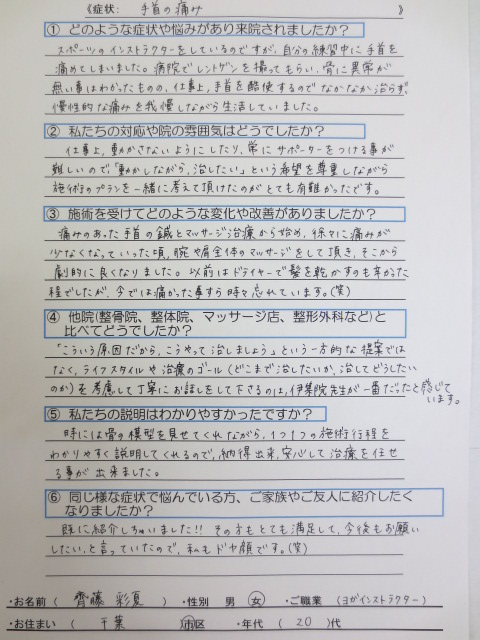 《症状: 手首の痛み 》
① どのような症状や悩みがあり来院されましたか?
スポーツのインストラクターをしているのですが、自分の練習中に手首を
痛めてしまいました。病院でレントゲンを撮ってもらい、骨に異常が
無い事はわかったものの、仕事上、手首を酷使するのでなかなか治らず、
慢性的な痛みを我慢しながら生活していました。
② 私たちの対応や院の雰囲気はどうでしたか?
仕事上、動かさないようにしたり、常にサポーターをつける事が
難しいので「動かしながら、治したい」という希望を尊重しながら
施術のプランを一緒に考えて頂けたのがとても有難かったです。
③ 施術を受けてどのような変化や改善がありましたか?
痛みのあった手首の鍼とマッサージ治療から始め、徐々に痛みが
少なくなっていった頃、腕や肩全体のマッサージをして頂き、そこから
劇的に良くなりました。以前はドライヤーで髪を乾かすのも辛かった
程でしたが、今では痛かった事すら時々忘れています。(笑)
④ 他院(整骨院、整体院、マッサージ店、整形外科など)と
比べてどうでしたか?
「こういう原因だから、こうやって治しましょう」という一方的な提案では
なく、ライフスタイルや治療のゴール(どこまで治したいか、治してどうしたい
のか)を考慮して丁寧にお話しをして下さるのは、伊集院先生が一番だったと感じて
います。
⑤ 私たちの説明はわかりやすかったですか?
時には骨の模型を見せてくれながら、1つ1つの施術行程を
わかりやすく説明してくれるので、納得出来、安心して治療を任せ
る事が出来ました。
⑥ 同じ様な症状で悩んでいる方、ご家族やご友人に紹介したく
なりましたか?
既に紹介しちゃいました!! その方もとても満足して、今後もお願い
したい、と言っていたので、私もドヤ顔です。(笑)
・お名前( 齊藤 彩夏 ) ・性別 男 女 ・ご職業 (ヨガインストラクター)
・お住まい( 千葉 市区 ・年代( 20 )代